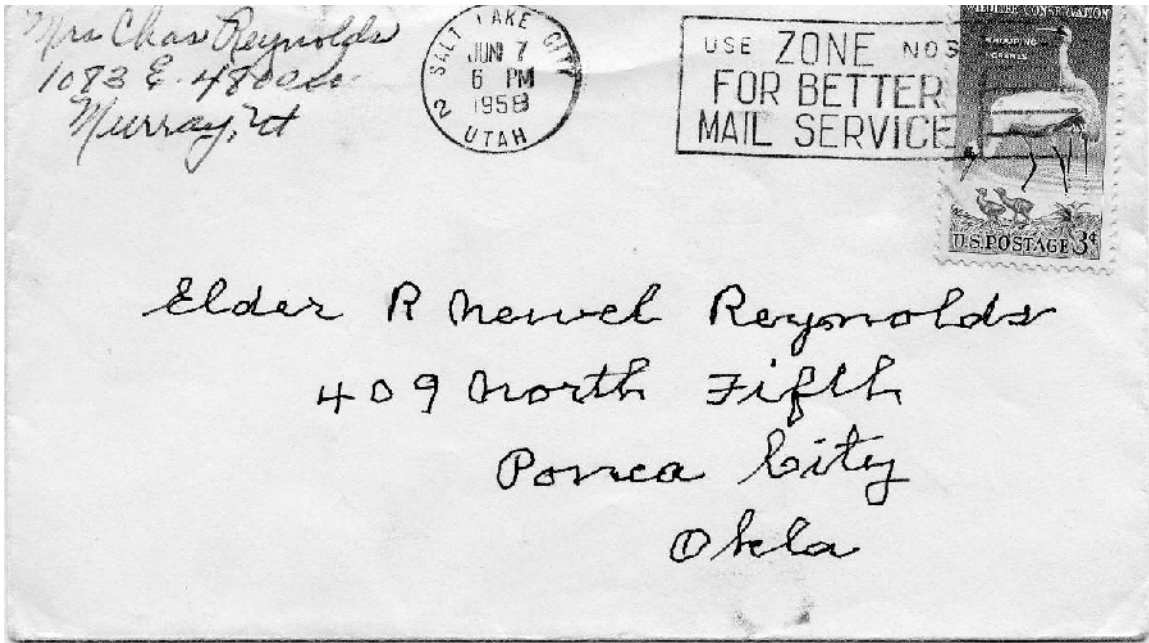 Mrs Chas Reynolds
1083 E. 4800 So.
Murray, Ut
SALT LAKE CITY
JUN 7
6 PM
1958
2 UTAH
USE ZONE NOS
FOR BETTER
MAIL SERVICE
WILDLIFE CONSERVATION
WHOOPING
CRANES
U.S. POSTAGE 3¢
Elder R Newel Reynolds
409 North Fifth
Ponca City
Okla